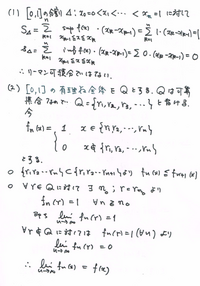 (1) [0,1]の分割 Δ: x₀=0<x₁<…<xₙ=1 に対して
S_Δ = Σ_{k=1}^{n} sup f(x)・(x_k-x_{k-1}) = Σ_{k=1}^{n} 1・(x_k-x_{k-1})=1
x_{k-1}≦x≦x_k
s_Δ = Σ_{k=1}^{n} inf f(x)・(x_k-x_{k-1}) = Σ0・(x_k-x_{k-1})=0
x_{k-1}≦x≦x_k
∴ リーマン可積ではない.
(2) [0,1]の有理数全体を Q とする. Q は可算
集合なので Q={r₁,r₂,r₃,…} と書ける.
今
fₙ(x)= 1 x∈{r₁,r₂,…,rₙ}
0 x∉{r₁,r₂,…,rₙ}
とする.
○ {r₁,r₂…rₙ}⊂{r₁,r₂…rₙ₊₁} より fₙ(x)≦fₙ₊₁(x)
○ ∀r∈Q に対して ∃n₀; r=r_{n₀} より
fₙ(r)=1 ∀n≧n₀
lim_{n→∞} fₙ(r)=1
∀r∉Q に対して fₙ(r)=0(∀n) より
lim_{n→∞} fₙ(r)=0
∴ lim_{n→∞} fₙ(x)=f(x)